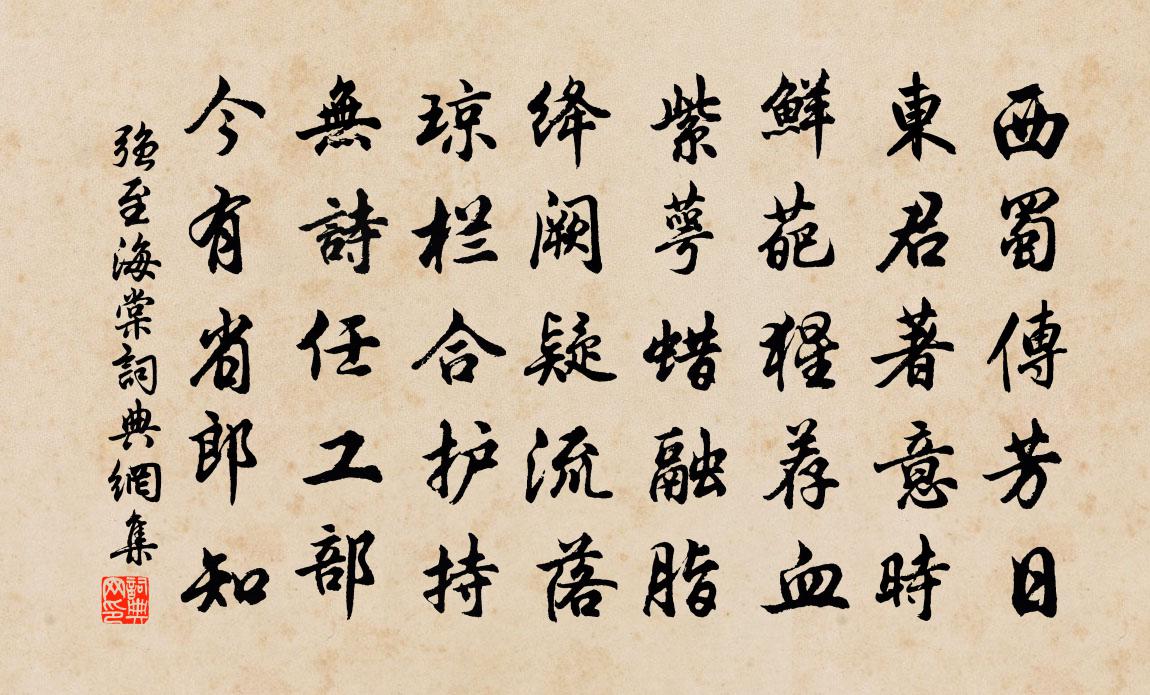 西蜀傳芳日
東君著意時
鮮葩猩荐血
紫萼蜡融脂
绛阙疑流落
琼栏合护持
無詩任工部
今有省郎知
強至海棠詞典網集
詞典網印